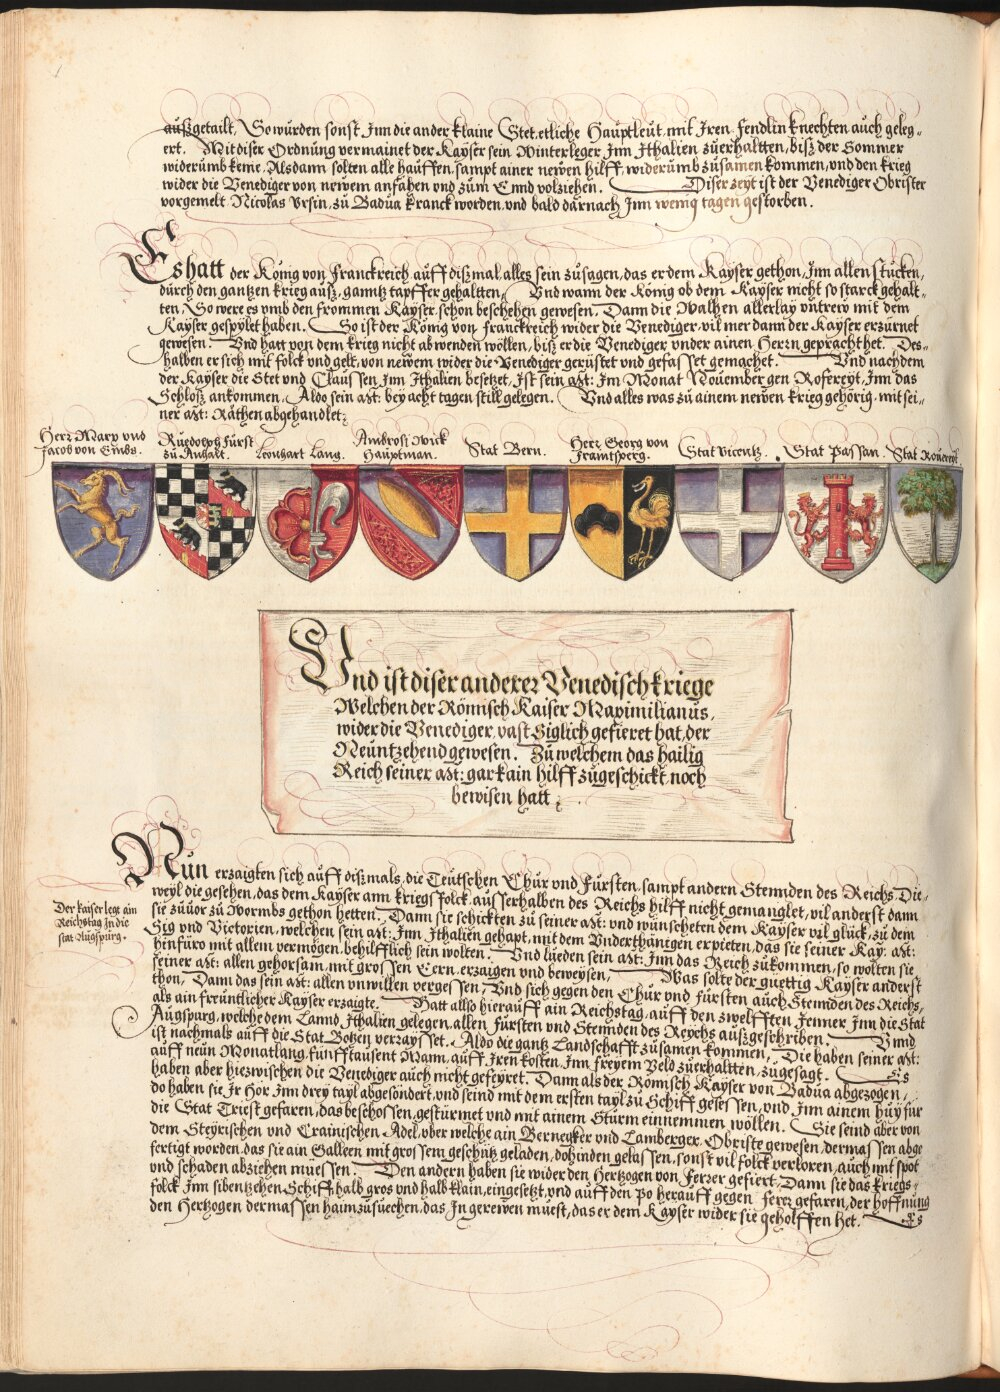 außgetailt. So würden sonst Jnn die ander klaine Stet, etliche Haüptleüt, mit Jren fendlin knechten aüch geleg-
ert. Mit diser Ordnüng vermainet der Kayser sein Winterleger Jnn Jthalien züerhaltten, biß der Sommer
widerümb keme. Alsdann solten alle haüffen, sampt ainer newen hilff, widerümb züsamen kommen, vnd den krieg
wider die Venediger von newem anfahen vnd züm Ennd volziehen. Diser zeyt ist der Venediger Obrister
vorgemelt Nicolas Vrsin, zü Badüa kranck worden, vnd bald darnach Jnn wenig tagen gestorben.
Es hatt der König von franckreich aüff dißmal, alles sein züsagen, das er dem Kayser gethon, Jnn allen stücken,
dürch den gantzen krieg aüß, ganntz tapffer gehaltten, Vnd wann der König ob dem Kayser nicht so starck gehalt-
ten, So were es vmb den frommen Kayser, schon beschehen gewesen. Dann die Walhen allerlay vntrew mit dem
Kayser gespylet haben. So ist der König von franckreich wider die Venediger, vil mer dann der Kayser erzürnet
gewesen. Vnd hatt von dem krieg nicht abwenden wöllen, biß er die Venediger vnder ainen Herrn gepracht het. Des-
halben er sich mit folck vnd gelt, von newem wider die Venediger gerüstet vnd gefasset gemachet. Vnd nachdem
der Kayser die Stet vnd Claussen Jnn Jthalien besetzet, Jst sein Mt: Jm Monat Nouember gen Rofereyt, Jnn das
Schloß ankommen, Aldo sein Mt: bey acht tagen still gelegen. Vnd alles was zü ainem newen krieg gehörig, mit sei-
ner Mt: Räthen abgehandlet.
Herr Marx vnd
Jacob von Embs.
Rüedolph fürst
zü Anhalt.
Leonhart Lang.
Ambrosi Wick
Haüptman.
Stat Bern.
Herr Georg von
frantsperg.
Stat Vicentz.
Stat Passan.
Stat Rouereyt.
Vnd ist diser anderer Venedisch kriege
Welchen der Römisch Kaiser Maximilianus,
wider die Venediger, vast Siglich gefieret hat, der
Neüntzehend gewesen. Zü welchem das hailig
Reich seiner Mt: gar kain hilff zügeschickt, noch
bewisen hatt.
Nün erzaigten sich aüff dißmals, die Teütschen Chür vnd fürsten, sampt andern Stennden des Reichs, Die-
weyl die gesehen, das dem Kayser am kriegsfolck, aüsserhalben des Reichs hilff nicht gemanglet, vil anderst dann
sie züüor zü Wormbs gethon hetten. Dann sie schickten zü seiner Mt: vnd wünscheten dem Kayser vil glück, zü dem
Sig vnd Victorien, welchen sein Mt: Jnn Jthalien gehapt, mit dem Vnderthänigen erpieten, das sie seiner Kay: Mt:
hinfüro mit allem vermögen, behilfflich sein wolten. Vnd lüeden sein Mt: Jnn das Reich zükommen, so wolten sie
seiner Mt: allen gehorsam, mit grossen Eern, erzaigen vnd beweysen, Was solte der güettig Kayser anderst
thon, Dann das sein Mt: allen vnwillen vergessen, Vnd sich gegen den Chür vnd fürsten aüch Stennden des Reichs,
als ain freüntlicher Kayser erzaigte. Hatt allso hieraüff ain Reichstag, aüff den zwelfften Jenner Jnn die Stat
Aügspürg, welche dem Lannd Jthalien gelegen, allen fürsten vnd Stennden des Reychs aüßgeschriben. Vnnd
ist nachmals aüff die Stat Botzen verraysset. Aldo die gantz Landschafft züsamen kommen, Die haben seiner Mt:
aüff neün Monat lang, fünfftaüsent Mann, aüff Jren kosten, Jnn freyem Veld züerhaltten, zügesagt. Es
haben aber hiezwischen die Venediger aüch nicht gefeyret. Dann als der Römisch Kayser von Badüa abgezogen,
do haben sie Jr Hör Jnn drey tayl abgesöndert, vnd seind mit dem ersten tayl zü Schiff gesessen, vnd Jnn ainem hüy für
die Stat Triest gefaren, das beschossen, gestürmet vnd mit ainem Stürm einnemmen wöllen. Sie seind aber von
dem Steyrischen vnd Crainischen Adel, vber welche ain Bernegker vnd Lamberger, Obriste gewesen, dermassen abge
fertigt worden, das sie ain Galleen mit grossem geschütz geladen, dohinden gelassen, sonst vil folck verloren, aüch mit spot
vnd schaden abziehen muessen. Den andern haben sie wider den Hertzogen von Ferrer gefiert, Dann sie das kriegs-
folck Jnn sibentzehen Schiff, halb gros vnd halb klain, eingesetzt, vnd aüff den Po heraüff gegen ferer gefaren, der hoffnüng
den Hertzogen dermassen haimzüsüechen, das Jn gerewen müest, das er dem Kayser wider sie geholffen het. Es
Der kaiser lege ain
Reichstag Jn die
stat Aügspürg.